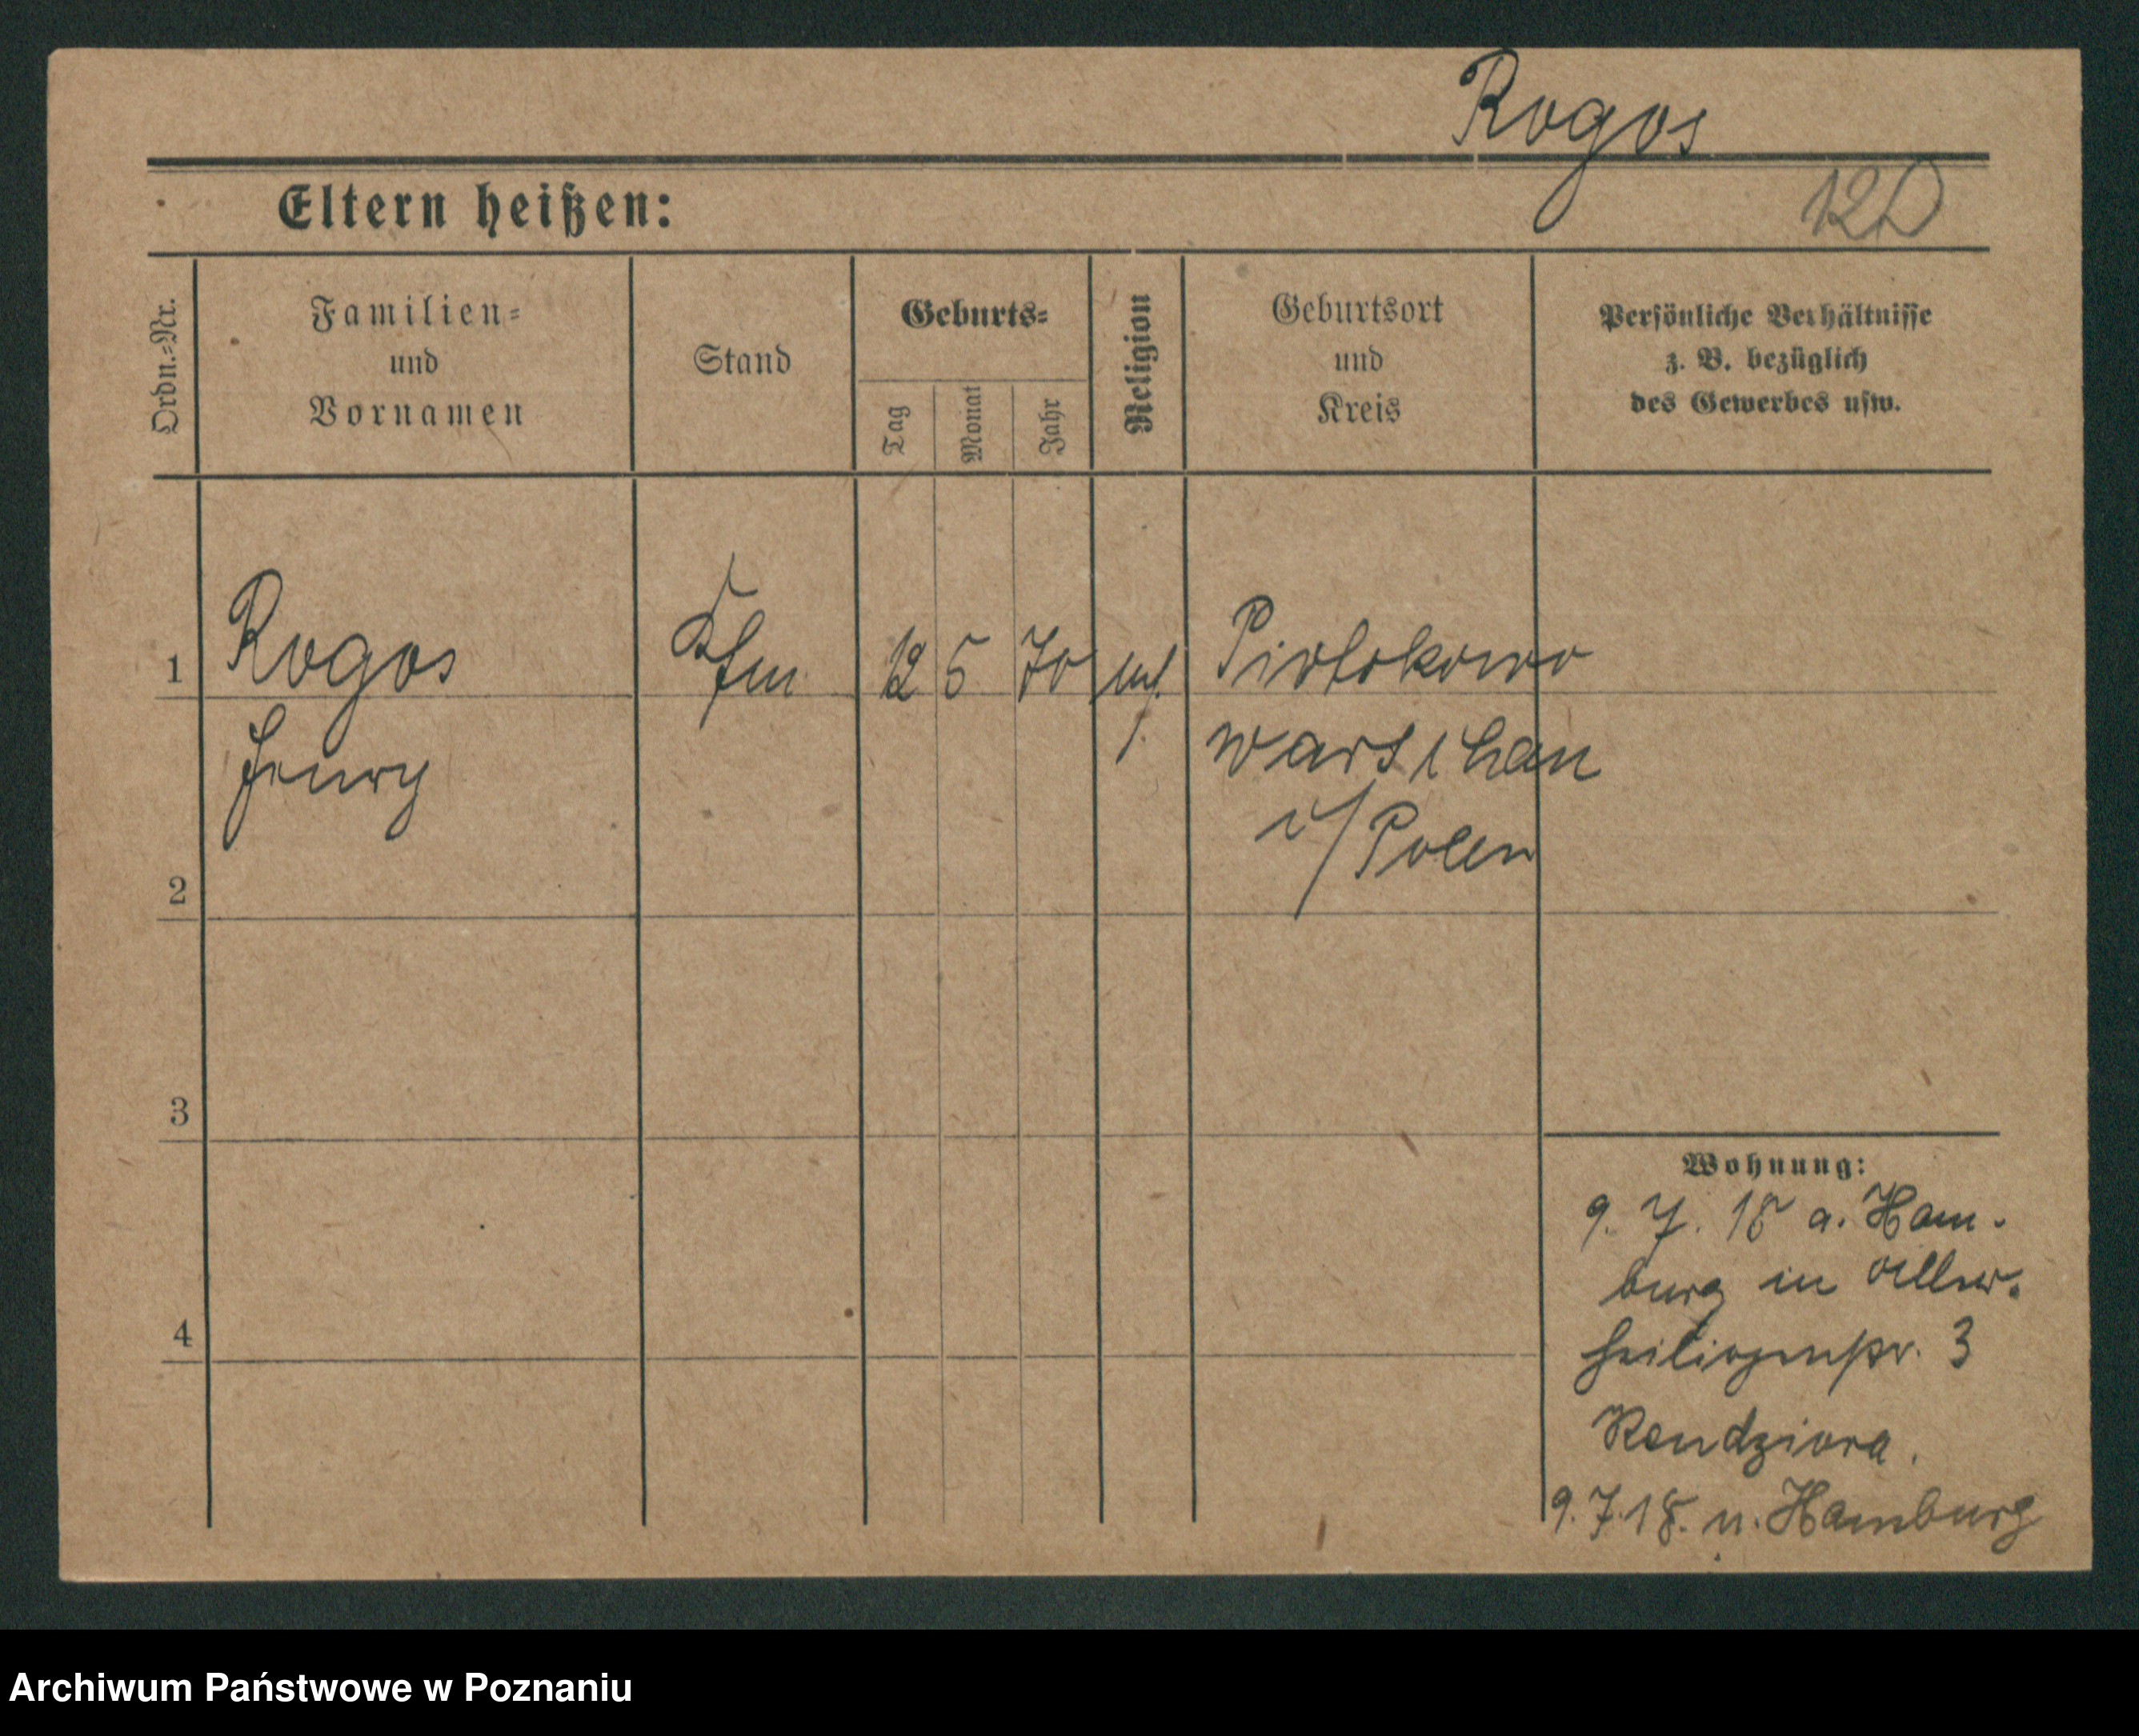 Rogos
120
Eltern heißen:
Ordn.=Nr.
Familien=
und
Vornamen
Stand
Geburts=
Tag
Monat
Jahr
Religion
Geburtsort
und
Kreis
Persönliche Verhältnisse
z. B. bezüglich
des Gewerbes usw.
1
Rogos
Kfm
12 5 70
Piotrkowo
Henry
Warschau
i/Polen
2
3
4
Wohnung:
9. 7. 18 a. Ham-
burg in Aller-
heiligenstr. 3
Rendziora.
9.7.18. n. Hamburg
Archiwum Państwowe w Poznaniu